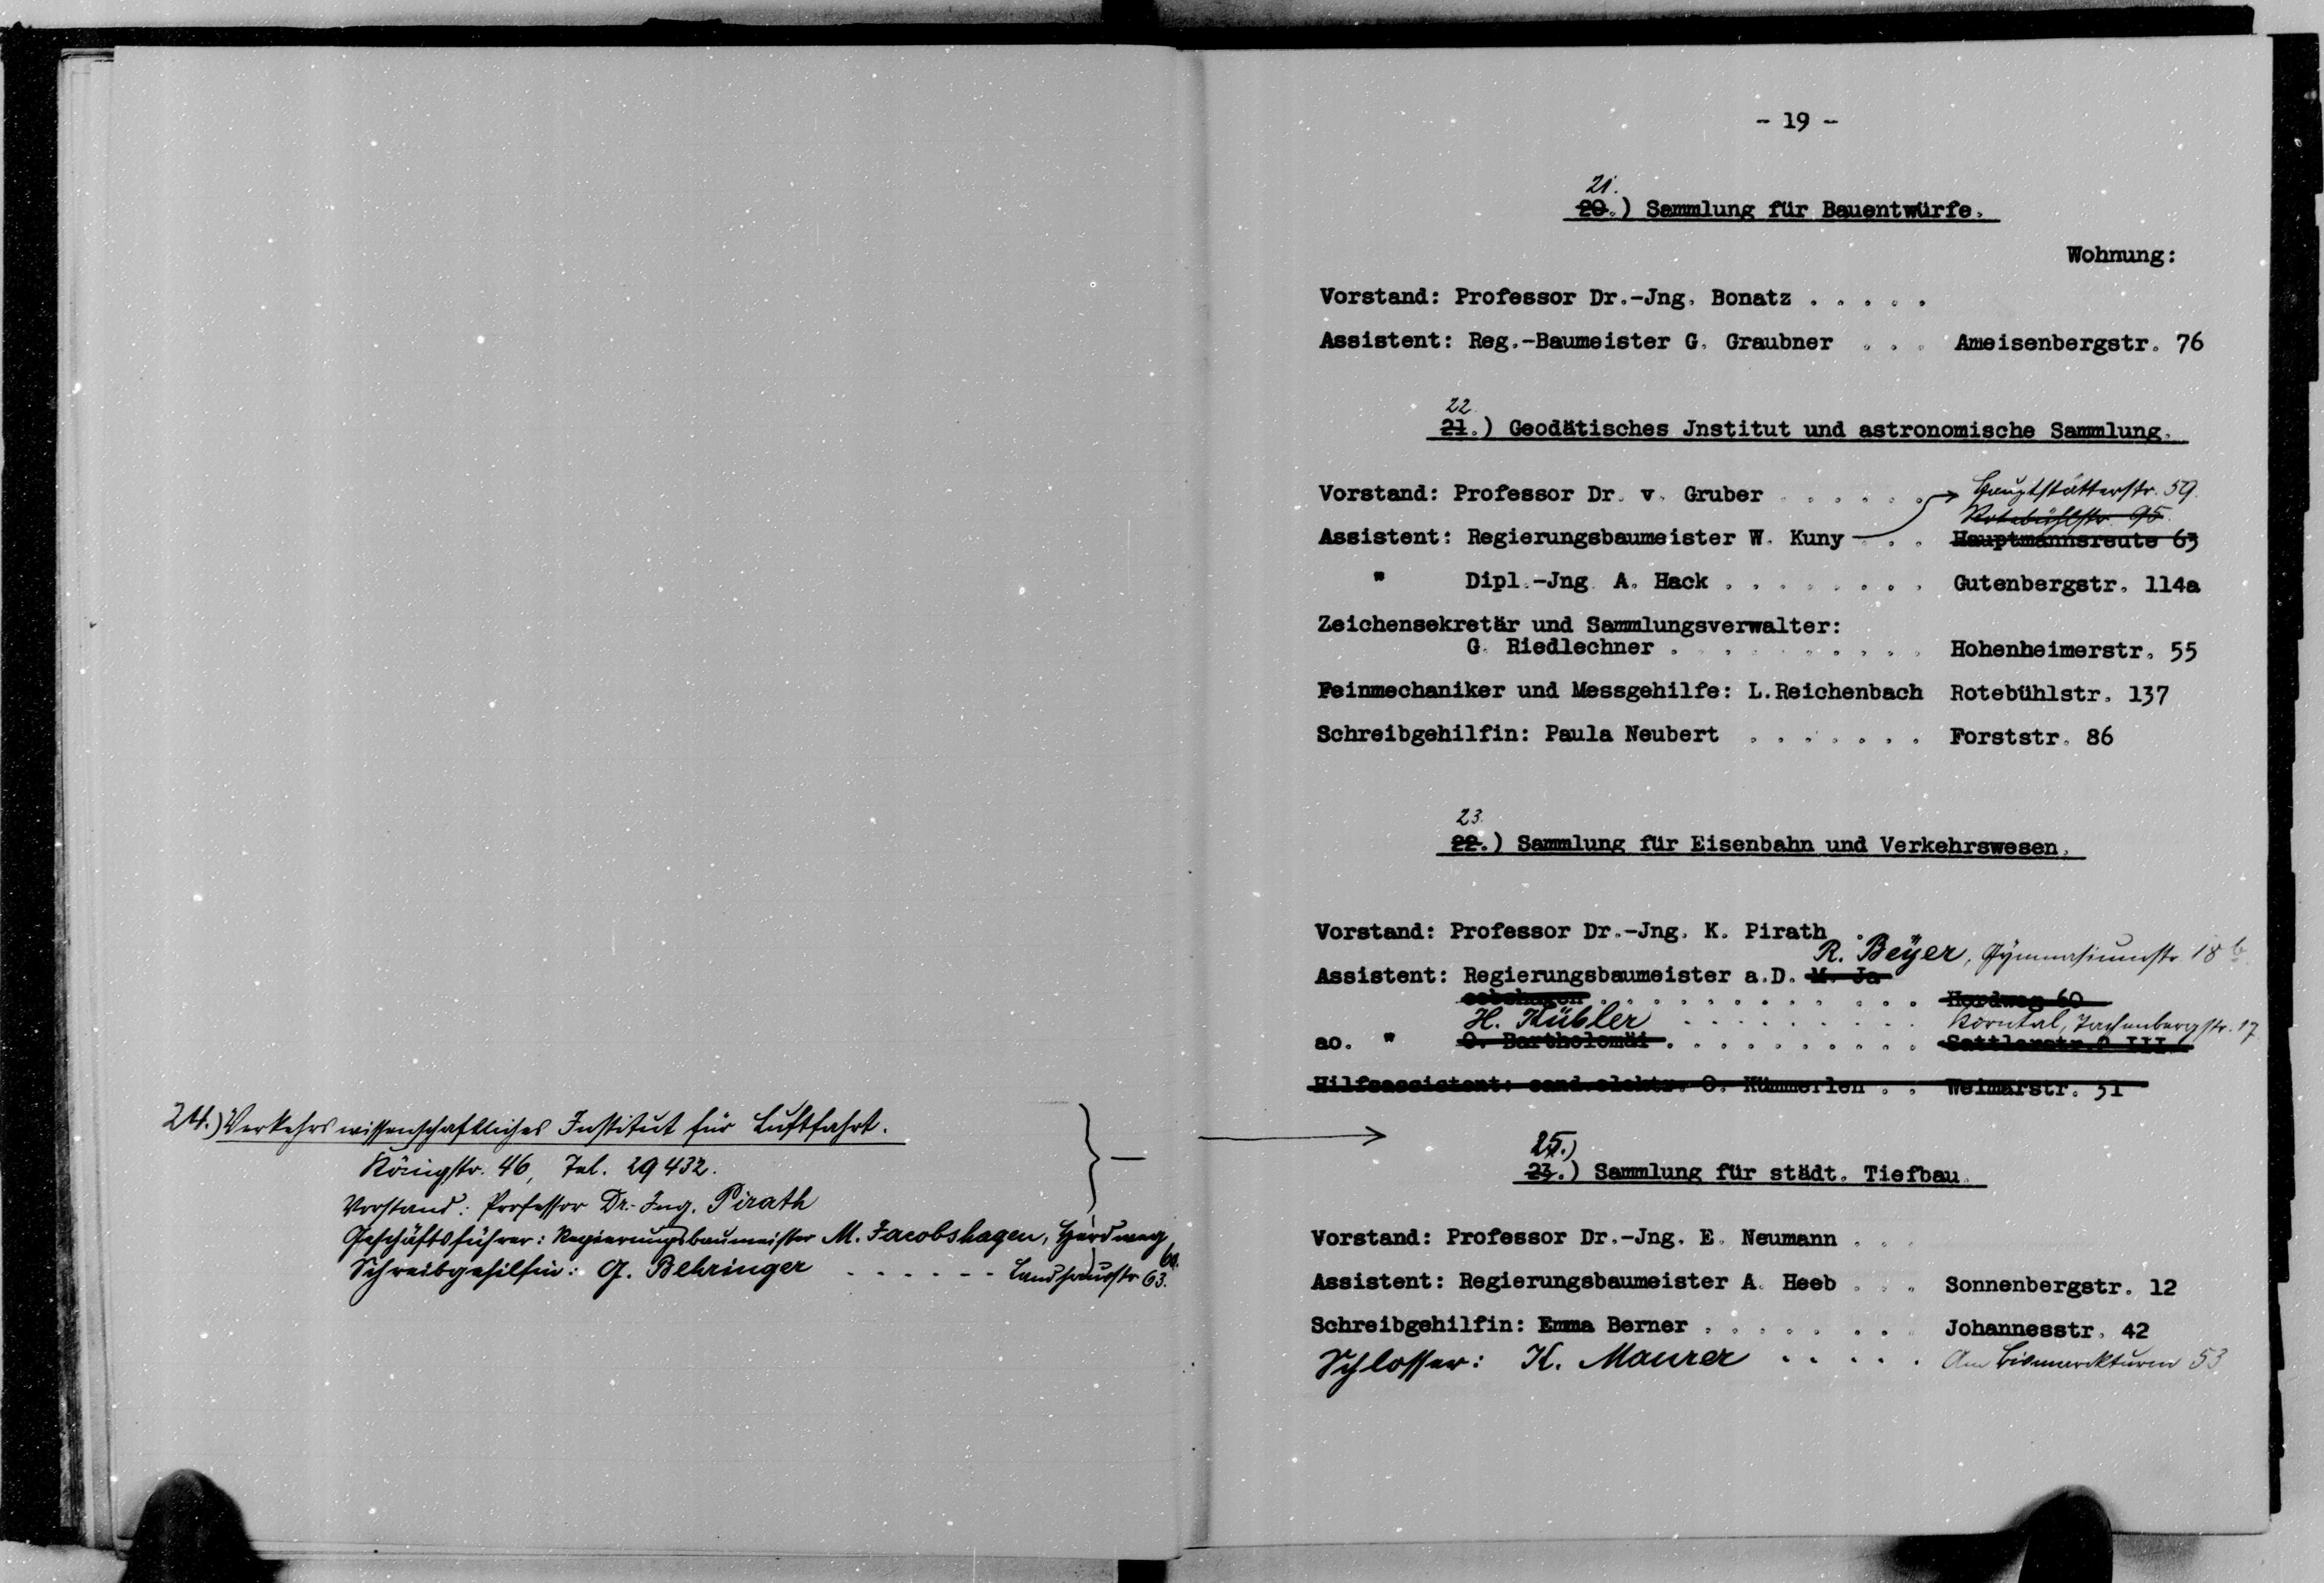 24.) Verkehrswissenschaftliches Institut für Luftfahrt.
Königstr. 46, Tel. 29432.
Vorstand: Professor Dr.-Ing. Pirath
Geschäftsführer: Regierungsbaumeister M. Jacobshagen, Herdweg 60.
Schreibgehilfin: G. Behringer . . . . . . Landhausstr. 63.
- 19 -
21.
20.) Sammlung für Bauentwürfe.
Wohnung:
Vorstand: Professor Dr.-Jng. Bonatz . . . . .
Assistent: Reg.-Baumeister G. Graubner . . . Ameisenbergstr. 76
22.
21.) Geodätisches Jnstitut und astronomische Sammlung.
Vorstand: Professor Dr. v. Gruber . . . . . . Hauptstätterstr. 59.
Rotebühlstr. 95.
Assistent: Regierungsbaumeister W. Kuny . . Hauptmannsreute 63
" Dipl.-Jng. A. Hack . . . . . . . . Gutenbergstr. 114a
Zeichensekretär und Sammlungsverwalter:
G. Riedlechner . . . . . . . . . . Hohenheimerstr. 55
Feinmechaniker und Messgehilfe: L.Reichenbach Rotebühlstr. 137
Schreibgehilfin: Paula Neubert . . . . . . . Forststr. 86
23.
22.) Sammlung für Eisenbahn und Verkehrswesen.
Vorstand: Professor Dr.-Jng. K. Pirath .
R. Beyer, Gymnasiumstr. 18 b
Assistent: Regierungsbaumeister a.D. M. Ja
cobshagen . . . . . . . . . . . . Herdweg 60
H. Kübler . . . . . . . . . Korntal, 17
ao. " O. Bartholomäi . . . . . . . . . . Sattlerstr. III
Hilfsassistent: cand.elektr. O. Kümmerlen . . Weimarstr. 31
25.)
23.) Sammlung für städt. Tiefbau.
Vorstand: Professor Dr.-Jng. E. Neumann . . .
Assistent: Regierungsbaumeister A. Heeb . . . Sonnenbergstr. 12
Schreibgehilfin: Emma Berner . . . . . . . . Johannesstr. 42
Schlosser: K. Maurer . . . . . Am Bismarckturm 53